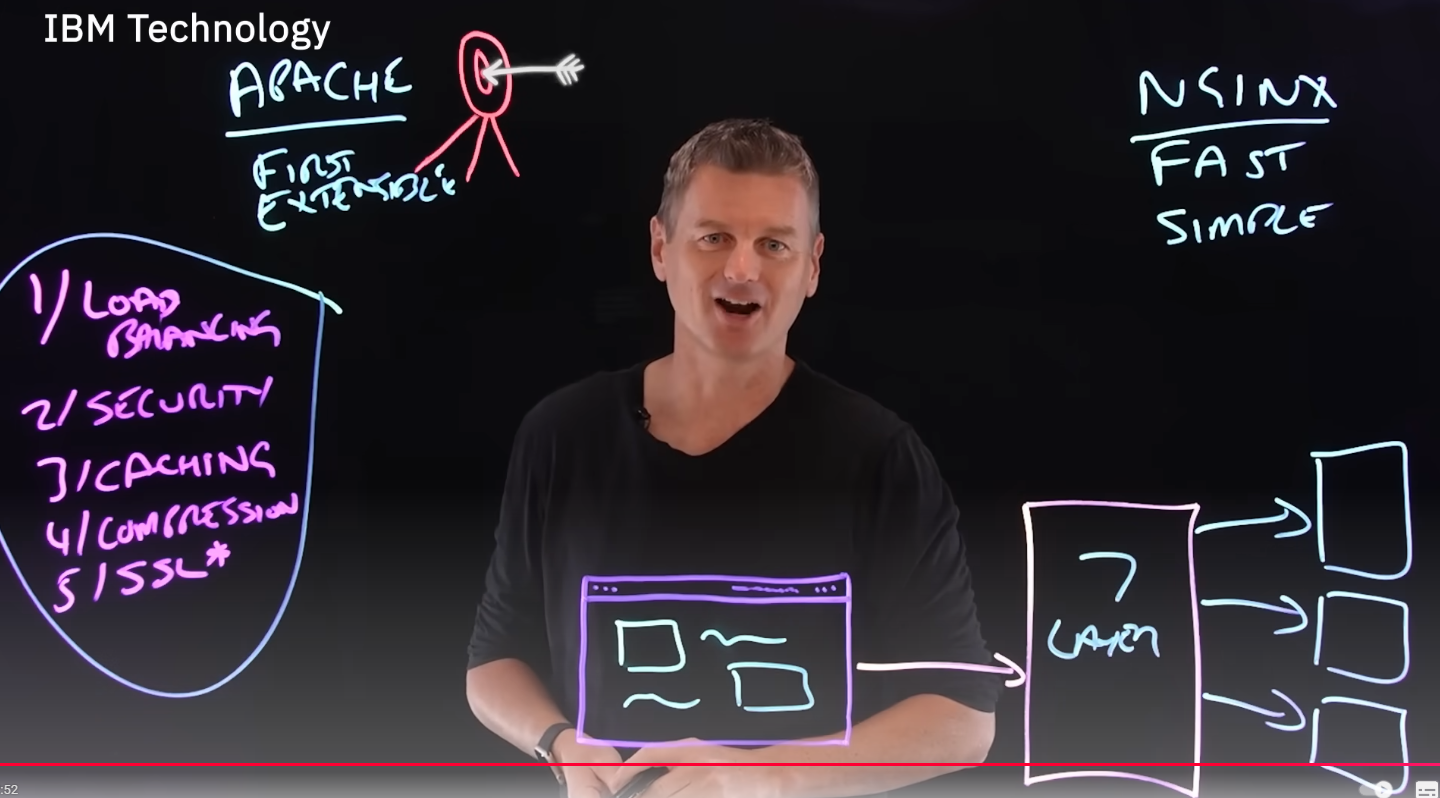 IBM Technology
APACHE
FIRST
EXTENSIBLE
NGINX
FAST
SIMPLE
1/ LOAD
BALANCING
2/ SECURITY
3/ CACHING
4/ COMPRESSION
5/ SSL*
7
LAYER
:52